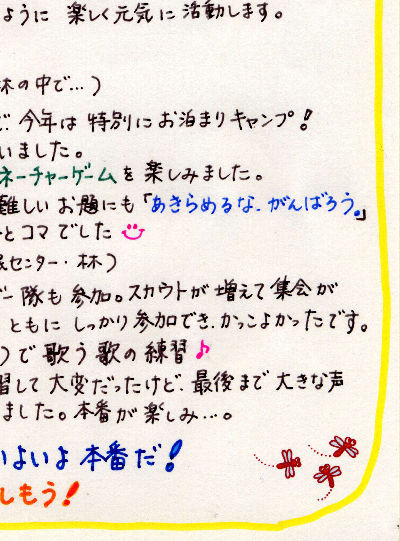 ように 楽しく元気に活動します。
林の中で…)
今年は 特別に お泊まりキャンプ!
いました。
ネーチャーゲームを 楽しみました。
難しい お題にも「あきらめるな、がんばろう。」
とコマ でした
センター・林)
隊も 参加。スカウトが 増えて 集会が
ともに しっかり 参加でき、かっこよかったです。
)で 歌う 歌の 練習♪
習して 大変だったけど、最後まで 大きな声
ました。本番が 楽しみ…。
いよいよ 本番だ!
しもう!